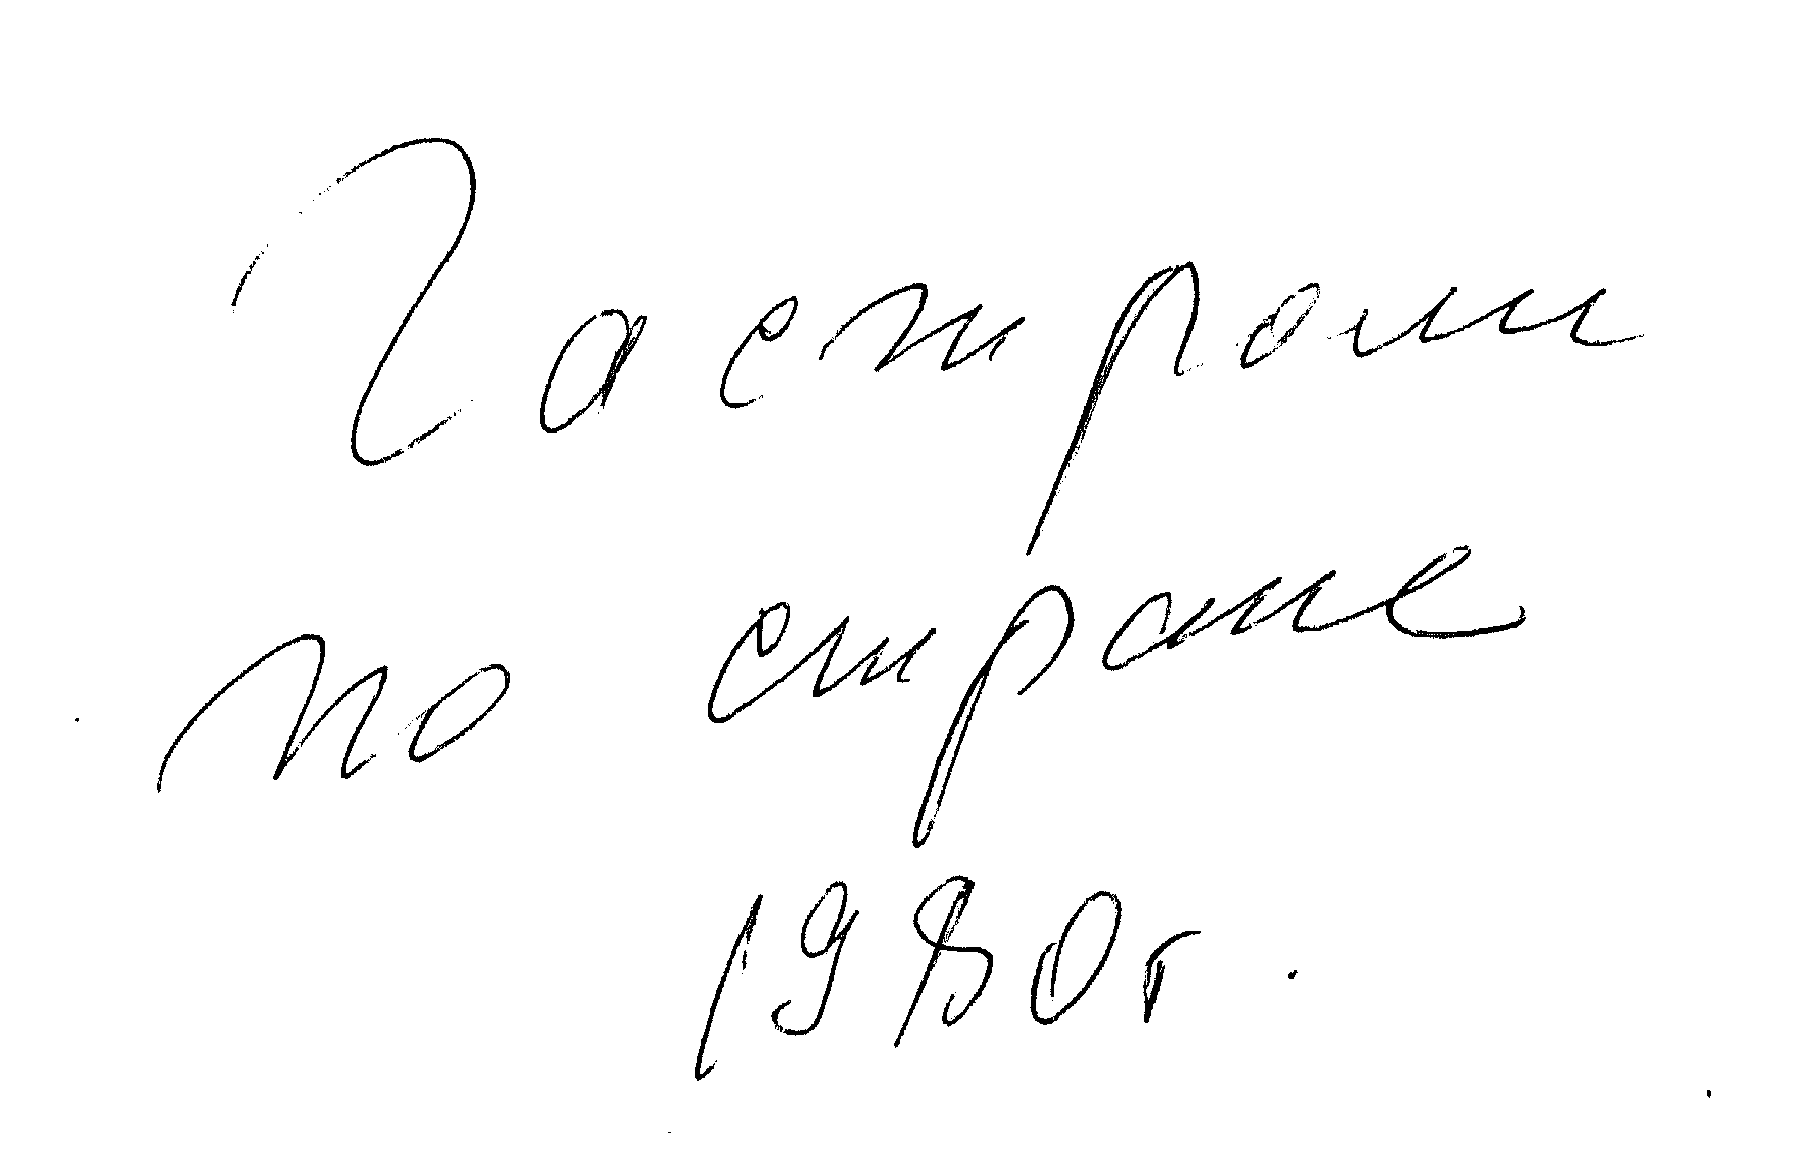 Гастроли
по стране
1980г.